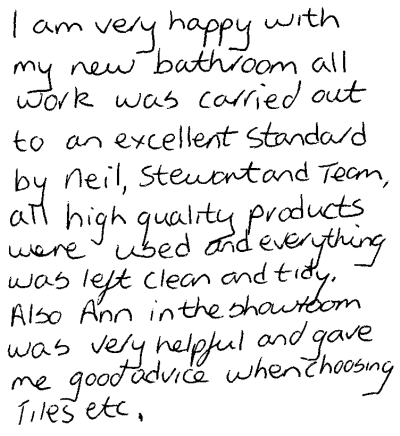 I am very happy with
my new bathroom all
work was carried out
to an excellent standard
by Neil, Stewart and Team,
all high quality products
were used and everything
was left clean and tidy.
Also Ann in the showroom
was very helpful and gave
me good advice when choosing
Tiles etc.